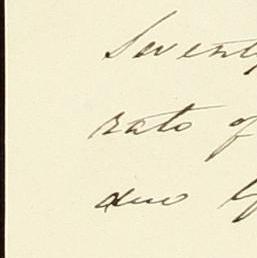 Seventy
rate of
due